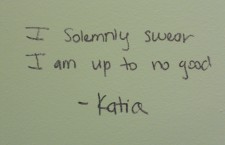 I Solemnly swear
I am up to no good
- Katia